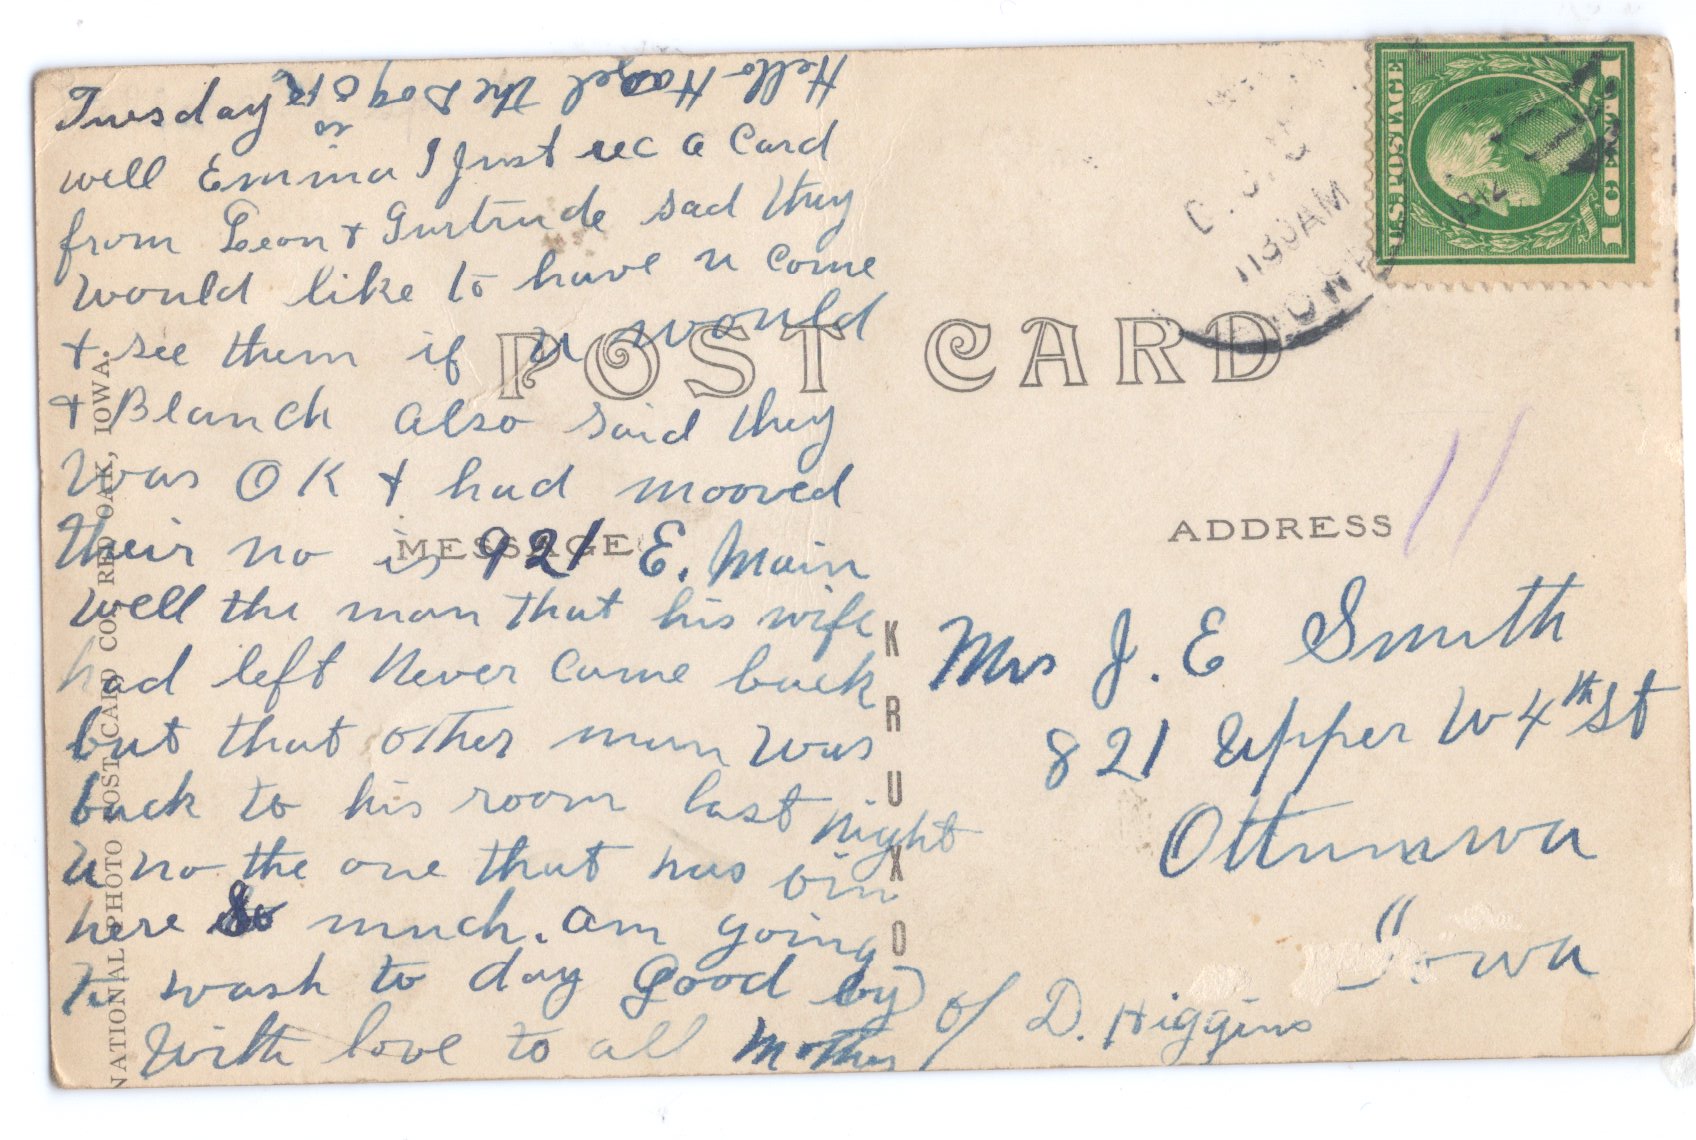 Tuesday
Hello Hazel the Dog is OK
well Emma I Just rec a Card
from Leon + Gurtrude sad they
would like to have u come
+ see them if u would
+ Blanch also said they
was OK + had mooved
their no is 921 E. Main
well the man that his wife
had left never came back
but that other man was
back to his room last night
u no the one that has bin
here so much. am going
to wash to day Good by
With love to all Mother
POST CARD
MESSAGE
ADDRESS
NATIONAL PHOTO POST CARD CO., RED OAK, IOWA.
KRUXO
1130AM
IOWA
1912
U.S. POSTAGE
1 CENT 1
11
Mrs J. E Smith
821 Upper W 4th St
Ottumwa
Iowa
c/o D. Higgins